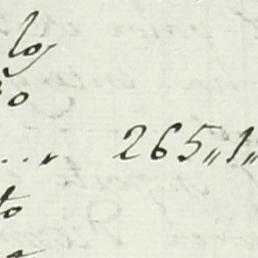 lo
o
.... 265,,1,,
to